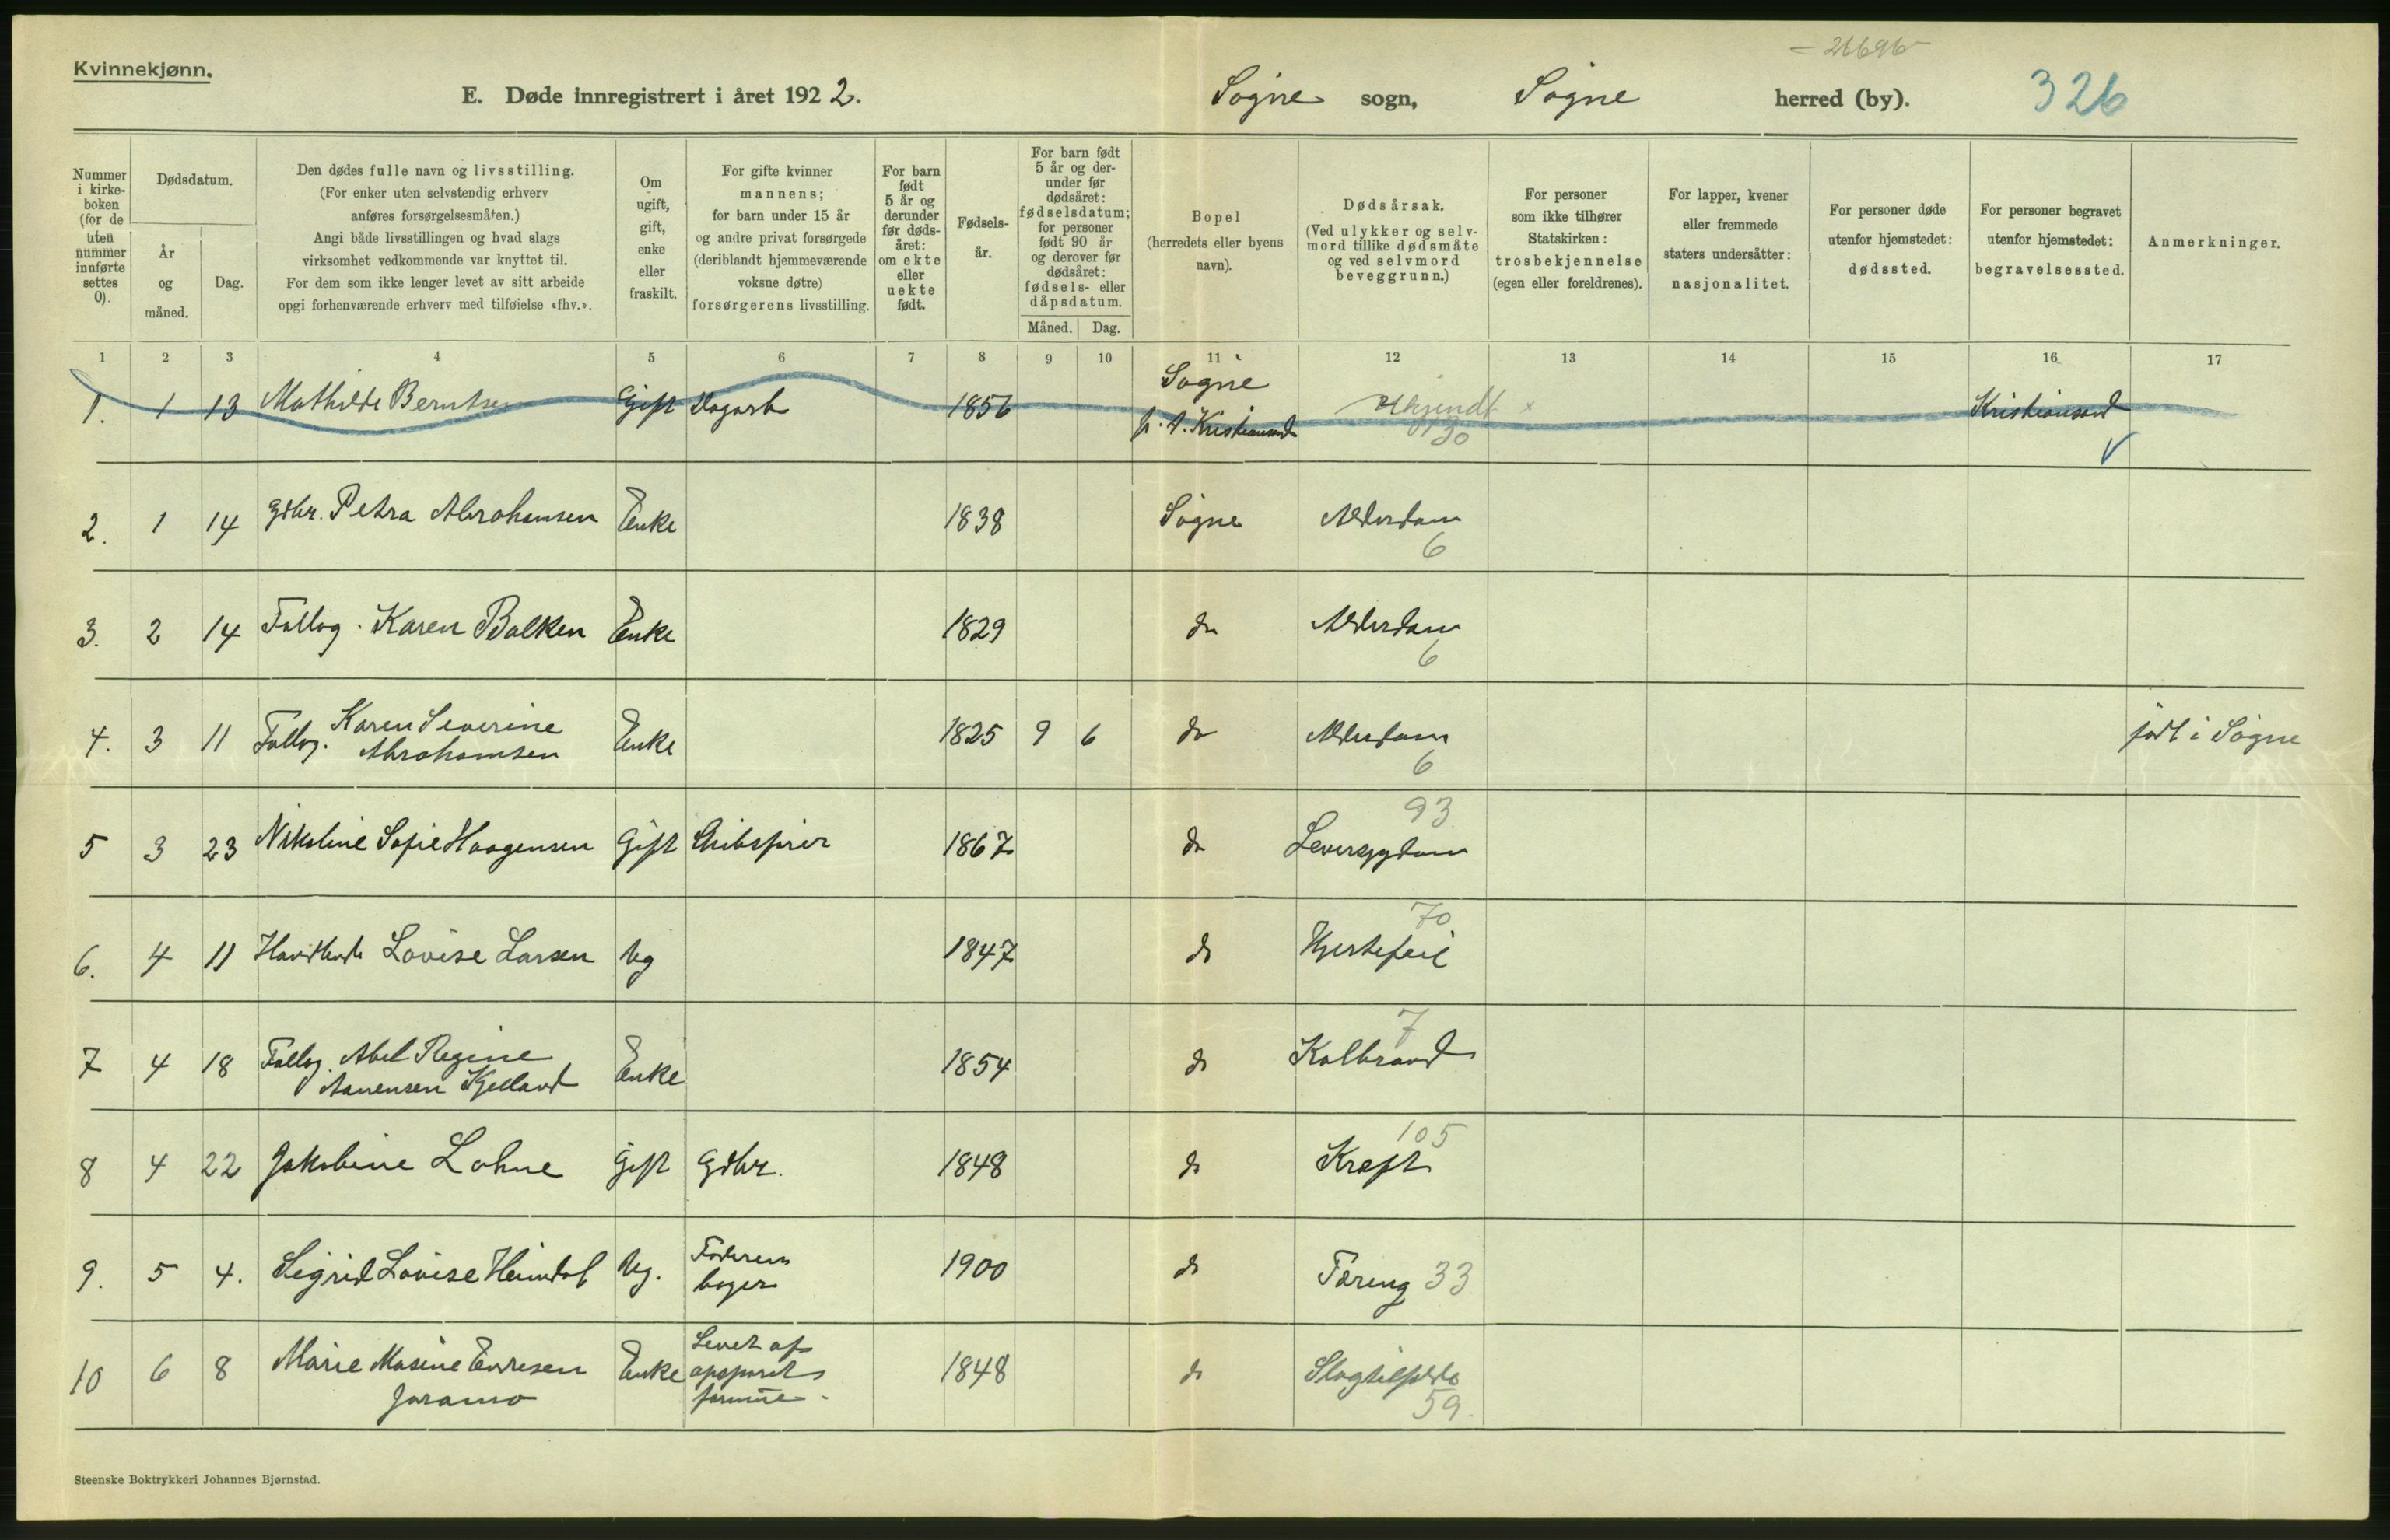 Kvinnekjønn.
E. Døde innregistrert i året 1922. Søgne sogn, Søgne herred (by). 326
26696
Nummer i kirke- boken (for de uten nummer innførte settes 0).
Dødsdatum.
År og måned.
Dag.
Den dødes fulle navn og livsstilling.
(For enker uten selvstendig erhverv
anføres forsørgelsesmåten.)
Angi både livsstillingen og hvad slags
virksomhet vedkommende var knyttet til.
For dem som ikke lenger levet av sitt arbeide
opgi forhenværende erhverv med tilføielse «fhv.».
Om ugift, gift, enke eller fraskilt.
For gifte kvinner
mannens;
for barn under 15 år
og andre privat forsørgede
(deriblandt hjemmeværende
voksne døtre)
forsørgerens livsstilling.
For barn født 5 år og derunder før døds- året: om ekte eller uekte født.
Fødsels- år.
For barn født 5 år og der- under før dødsåret: fødselsdatum; for personer født 90 år og derover før dødsåret: fødsels- eller dåpsdatum.
Måned. Dag.
Bopel
(herredets eller byens
navn).
Dødsårsak.
(Ved ulykker og selv-
mord tillike dødsmåte
og ved selvmord
beveggrunn.)
For personer
som ikke tilhører
Statskirken:
trosbekjennelse
(egen eller foreldrenes).
For lapper, kvener
eller fremmede
staters undersåtter:
nasjonalitet.
For personer døde
utenfor hjemstedet:
dødssted.
For personer begravet
utenfor hjemstedet:
begravelsessted.
Anmerkninger.
1 2 3 4 5 6 7 8 9 10 11 12 13 14 15 16 17
1. 1 13 Mathilde Berntsen Gift Dagarb 1856 Søgne p. t. Kristiansand Ukjendt x 130 Kristiansand
2. 1 14 Gdbr. Petra Abrahamsen Enke 1838 Søgne Alderdom 6
3. 2 14 Føllog. Karen Balken Enke 1829 do Alderdom 6
4. 3 11 Føllog. Karen Severine Abrahamsen Enke 1825 9 6 do Alderdom 6 født i Søgne
5 3 23 Nikoline Sofie Haagensen Gift Skibsfører 1867 do 93 Leversygdom
6. 4 11 Lovise Larsen Ug 1847 do 70 Hjertefeil
7 4 18 Føllog. Abel Regine Aanensen Kjelland Enke 1854 do 7 Kolbrand
8 4 22 Jakobine Lohne Gift Gdbr. 1848 do 105 Kreft
9. 5 4. Sigrid Lovise Heimdal Ug. Faderen bager 1900 do Tæring 33
10 6 8 Marie Masine Evresen Joramo Enke Levet af opsparet formue. 1848 do Slagtilfælde 59.
Steenske Boktrykkeri Johannes Bjørnstad.